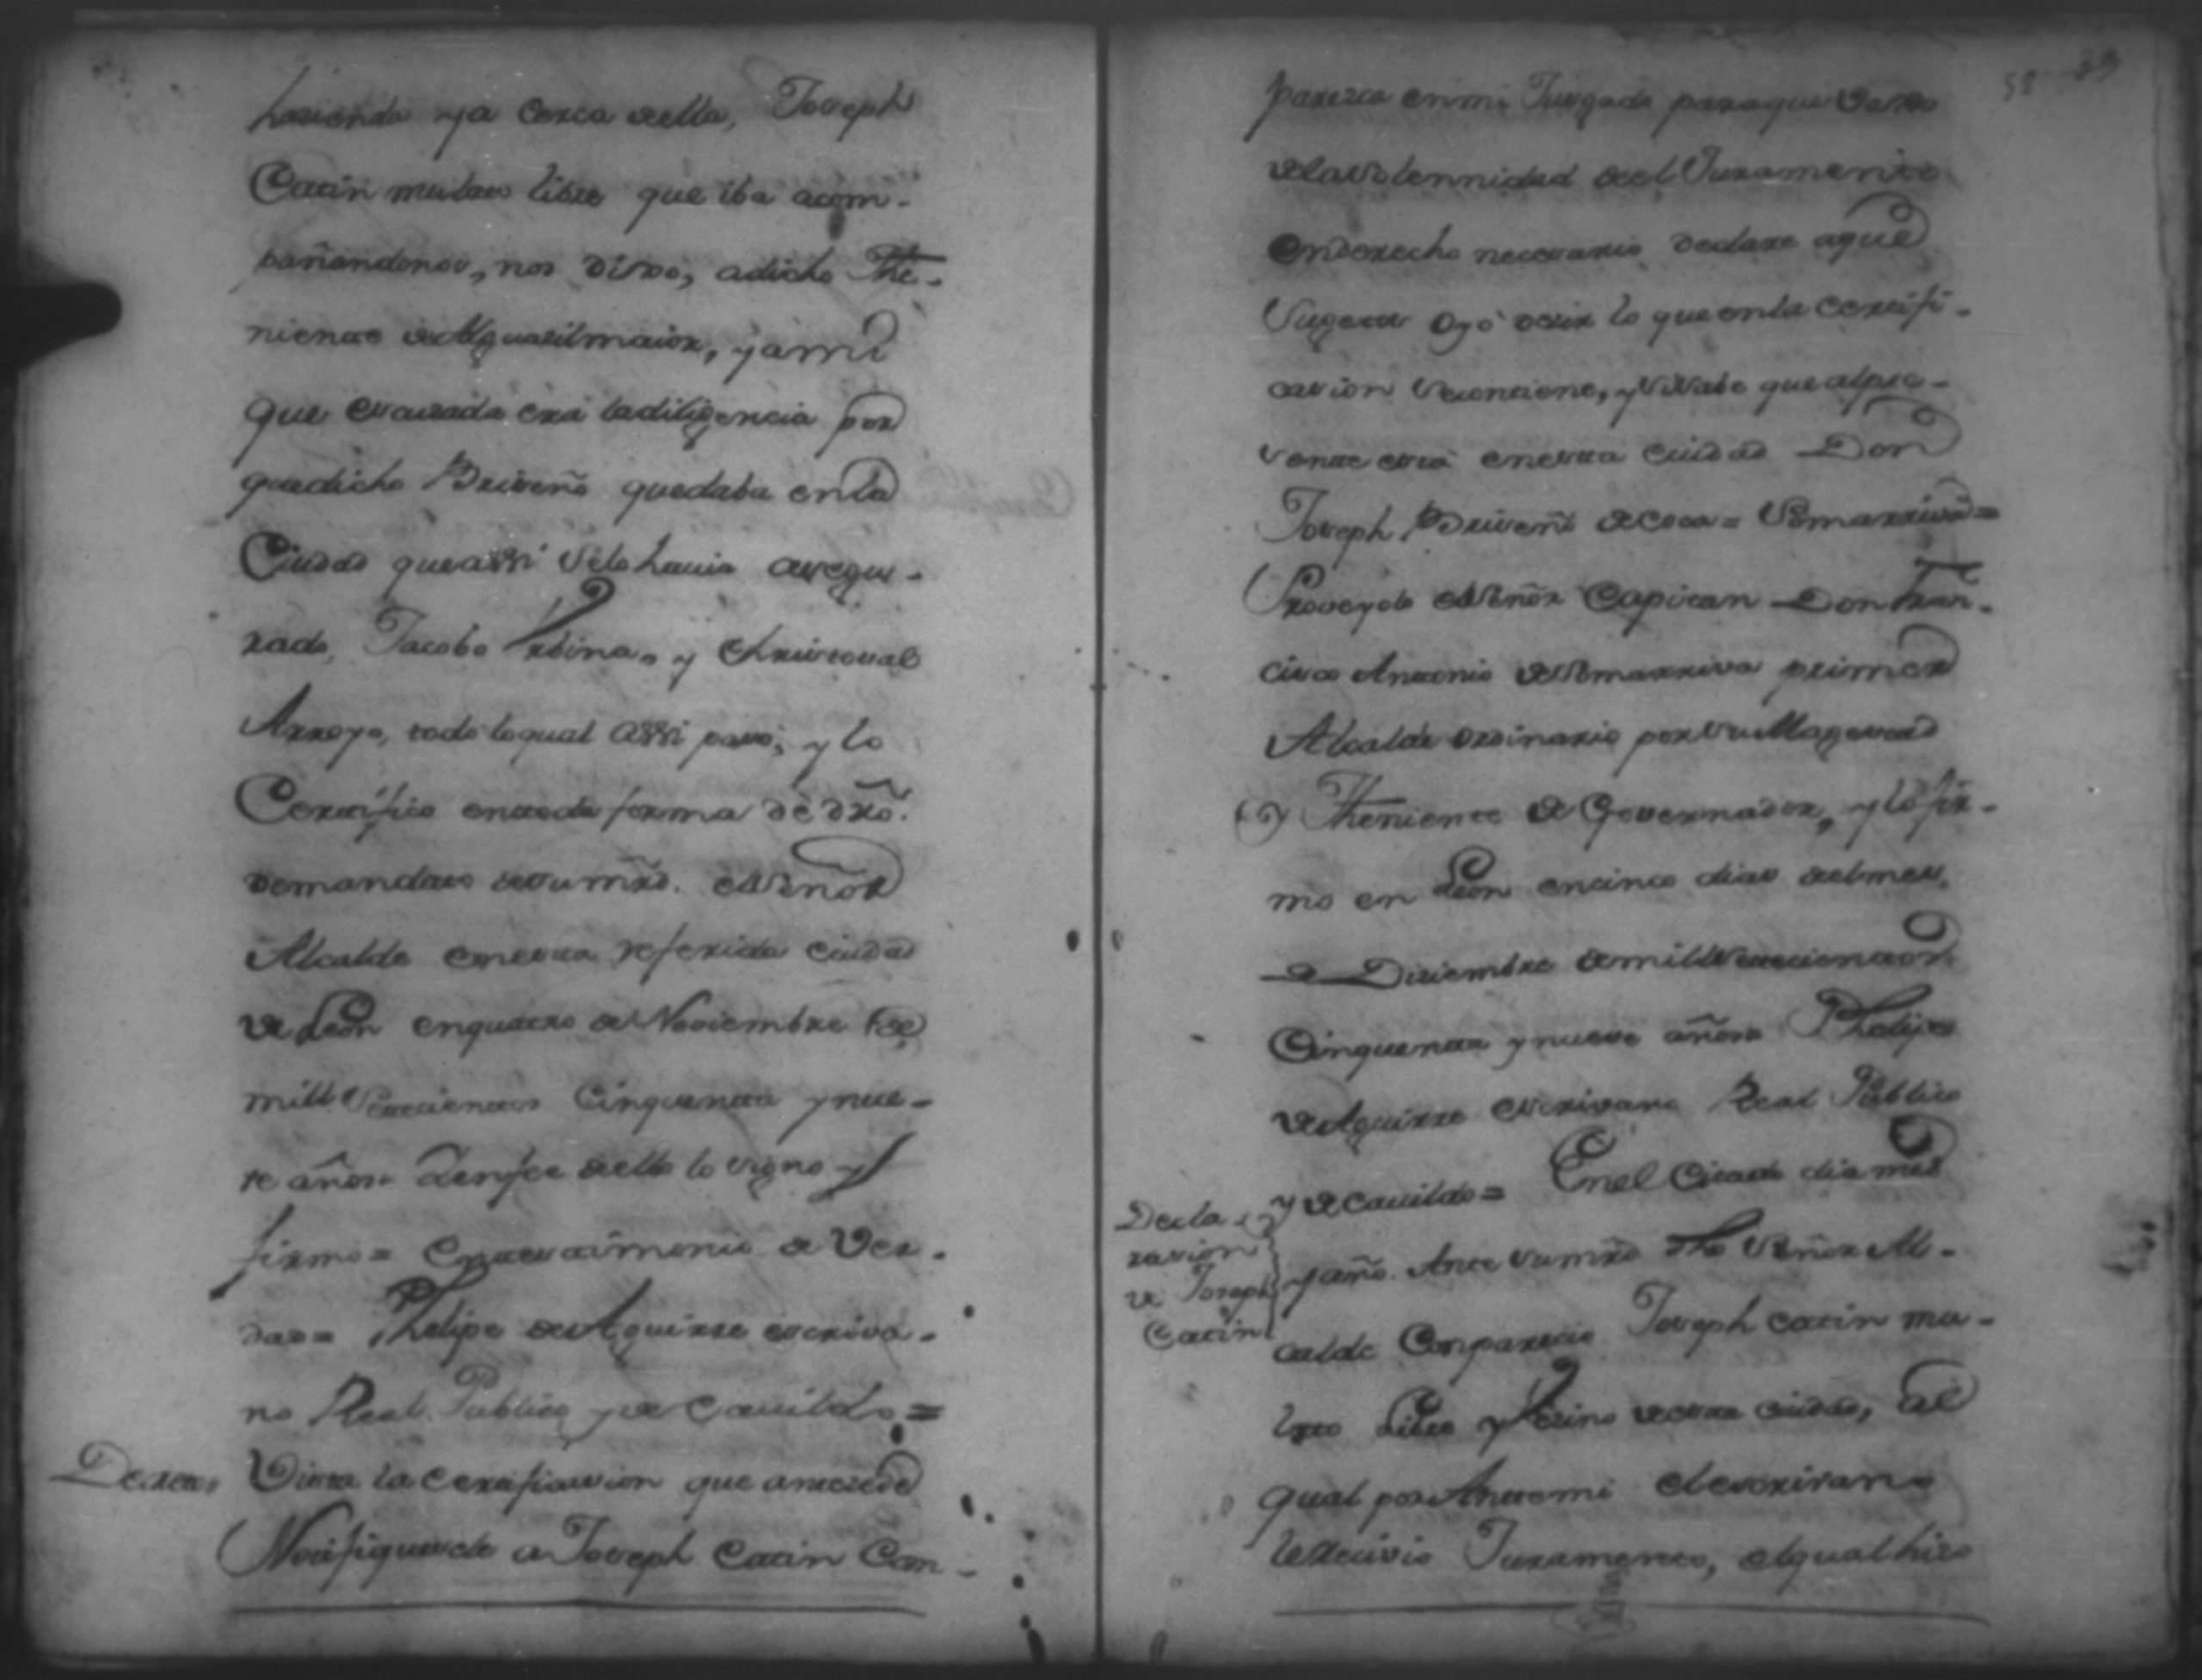 hazienda ya cerca della, Joseph
Catin mulato libre que iba acom-
pañandonos, nos dixo, adicho The-
niente de Alguasilmaior, y ami
que escusada era ladiligencia por
quedicho Briseño quedaba enla
Ciudad queassi selo havia asegu-
rado, Jacobo Urbina, y Christoval
Arroyo, todo loqual assi paso, y lo
Certifico entoda forma de dro.
demandato desumrd. el Señor
Alcalde enesta referida ciudad
de Leon enquatro de Noviembre de
mill Setecientos Cinquenta ynue-
ve años. Zenfee dello lo signo y
firmo = Entestimonio de Ver-
dad = Phelipe de Aguirre escriva-
no Real Publico y de Cavildo =
Decreto
Vista la Certificasion que antecede
Notifiquesele a Joseph Catin Com-
58 39
paresca enmi Jusgado paraque vaxo
delasolemnidad del Juramento
enderecho necesario declare aque
Sugetos oyó desir lo que enla certifi-
casion secontiene, y si sabe que alpre-
sente está enesta ciudad Don
Joseph Briseño de Coca = Somarriva =
Proveyolo el Señor Capitan Don Fran-
cisco Antonio de Somarriva primer
Alcalde ordinario por su Magestad
y Theniente de Governador, y lo fir-
mo en Leon encinco dias delmes
de Diziembre de mill setecientos
Cinquenta y nueve años = Phelipe
de Aguirre escrivano Real Publico
y de Cavildo = Enel Citado dia mes
Decla-
rasion
de Joseph
Catin
y año. Ante sumrd dho Señor Al-
calde Comparecio Joseph catin mu-
lato Libre y Vesino de esta ciudad, al
qual por Antemi el escrivano
lerecivio Juramento, elqual hizo